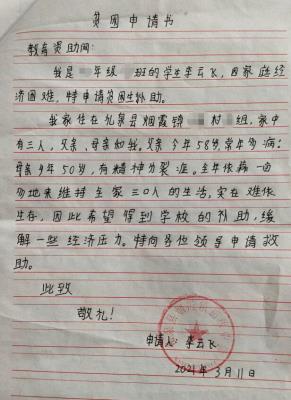 贫困申请书
教育资助闻:
我是 年级 班的学生李云飞,因家庭经
济困难,特申请贫困生补助。
我家住在九泉县烟霞镇 村 组,家中
有三人,父亲,母亲和我。父亲今年58岁常年多病;
母亲今年50岁,有精神分裂症。全年依靠一亩
多地来维持全家三口人的生活,实在难依
生存,因此希望得到学校的补助,缓
解一些经济压力。特向各位领导申请救
助。
此致
敬礼!
申请人 李云飞
2021年3月11日